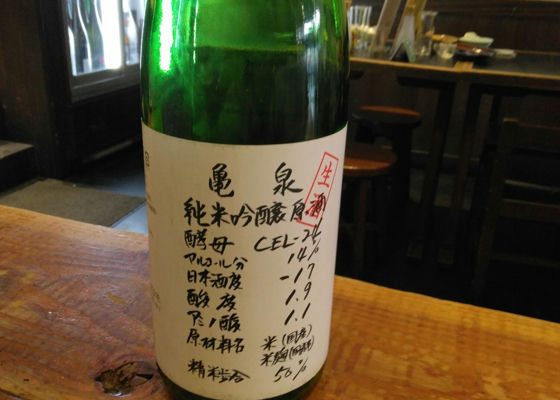 亀泉
生酒
純米吟醸原酒
酵母 CEL-24
アルコール分 14%
日本酒度 -17
酸度 1.9
アミノ酸 1.1
原材料名 米(国産)
米麹(国産米)
精米歩合 50%